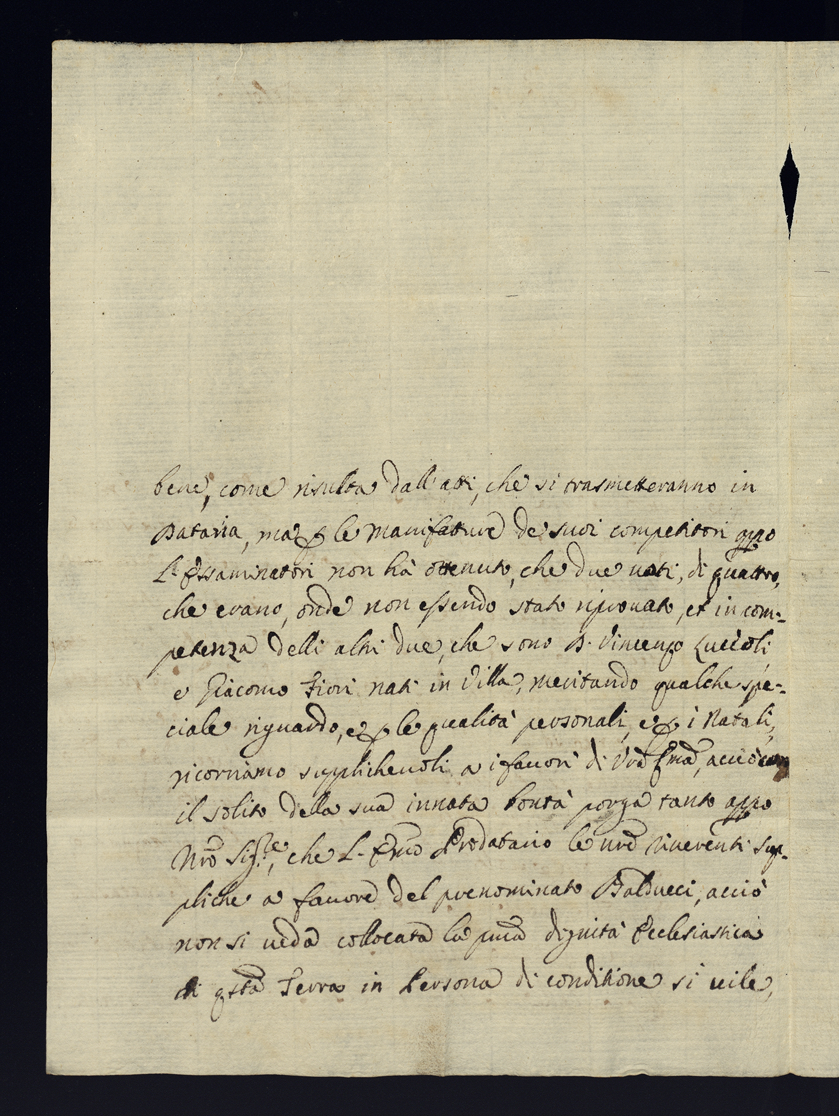 bene, come risulta dall'atti, che si trasmetteranno in
Dataria, ma p le manifatture de suoi competitori appo
L'Essaminatori non hà ottenuto, che due uoti, di quattro,
che erano, onde non essendo stato riprouato, et in com-
petenza delli altri due, che sono D. Vincenzo Luccioli
e Giacomo Fiori nati in Villa, meritando qualche spe-
ciale riguardo, e p le qualità personali, e p i Natali,
ricorriamo supplicheuoli a i fauori di Vrã Emã, acciò con
il solito della sua innata bontà porga tanto appo
Nrõ Sigre, che L'Emõ Prodatario le nrẽ riuerenti sup-
pliche a fauore del prenominato Balducci, acciò
non si ueda collocata la pmã dignità Ecclesiastica
di qstã Terra in Persona di conditione si uile,